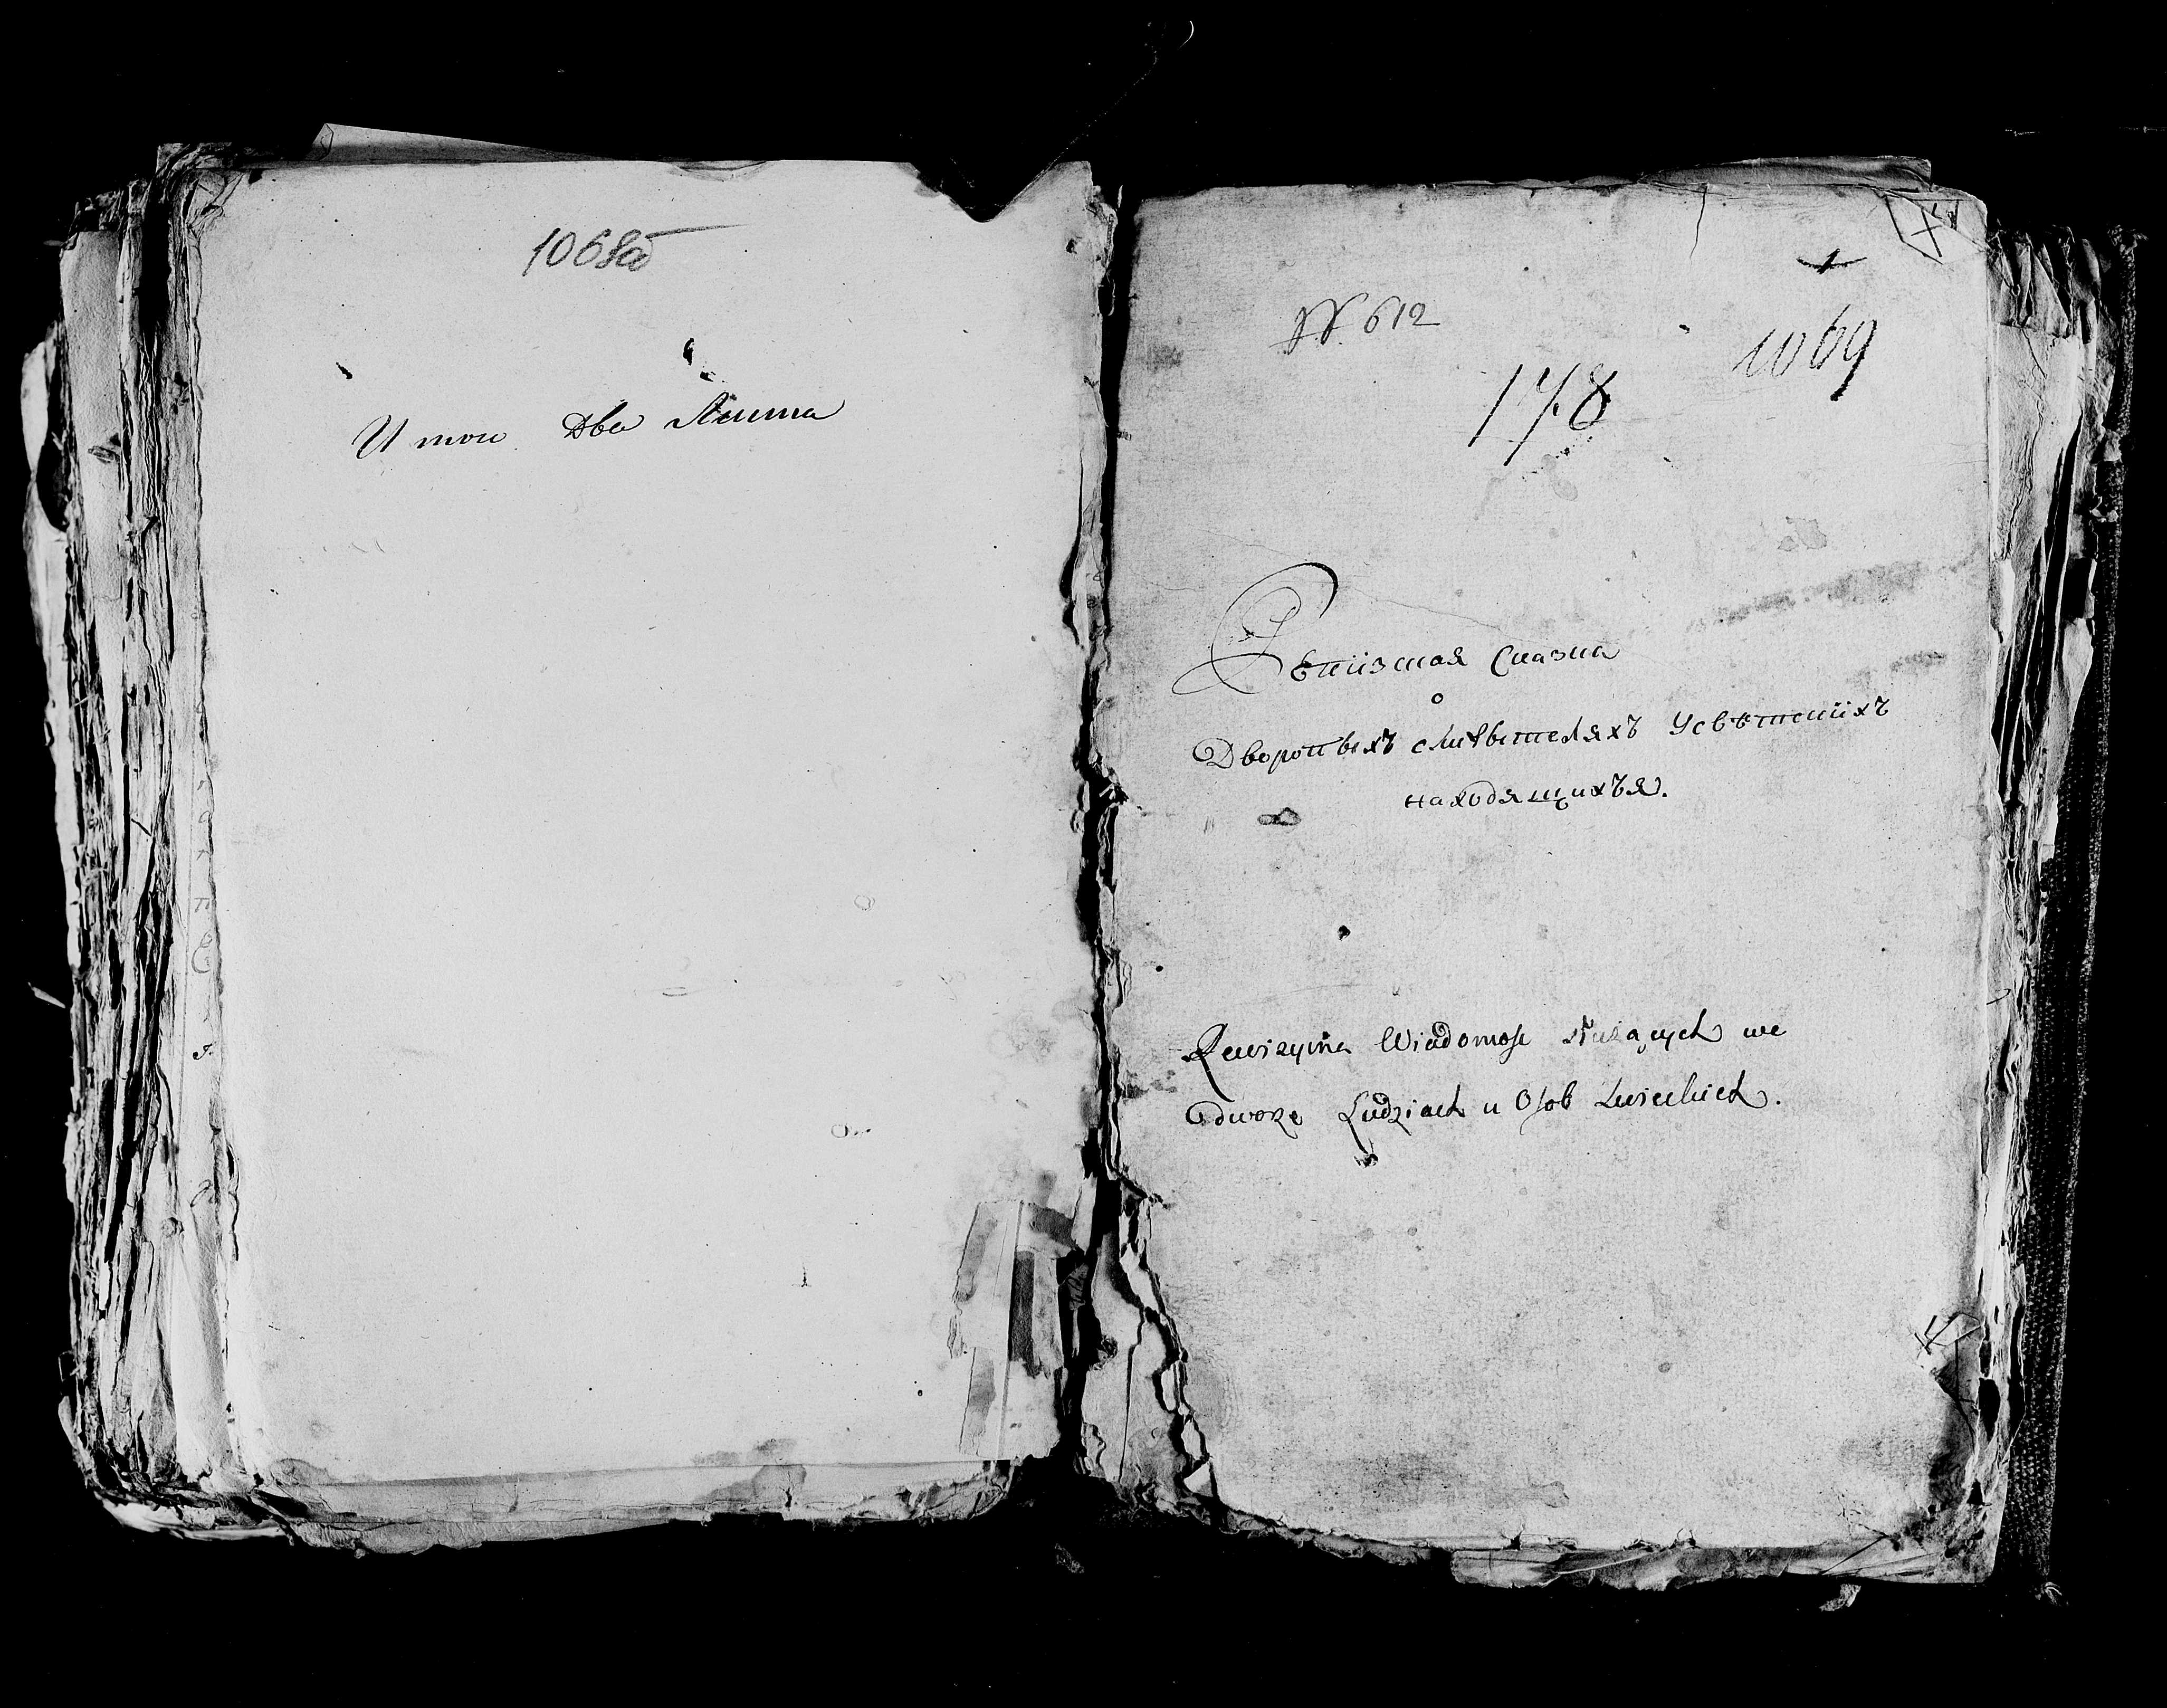 1068об
Итого Два Листа
№ 612
1069
178
Ревизская Сказка
о
Дворовыхъ служителяхъ Усвѣтскихъ
находящихъя.
Rewizyina Wiadomość służących we
dworze Ludziach u Osob Swieckich.